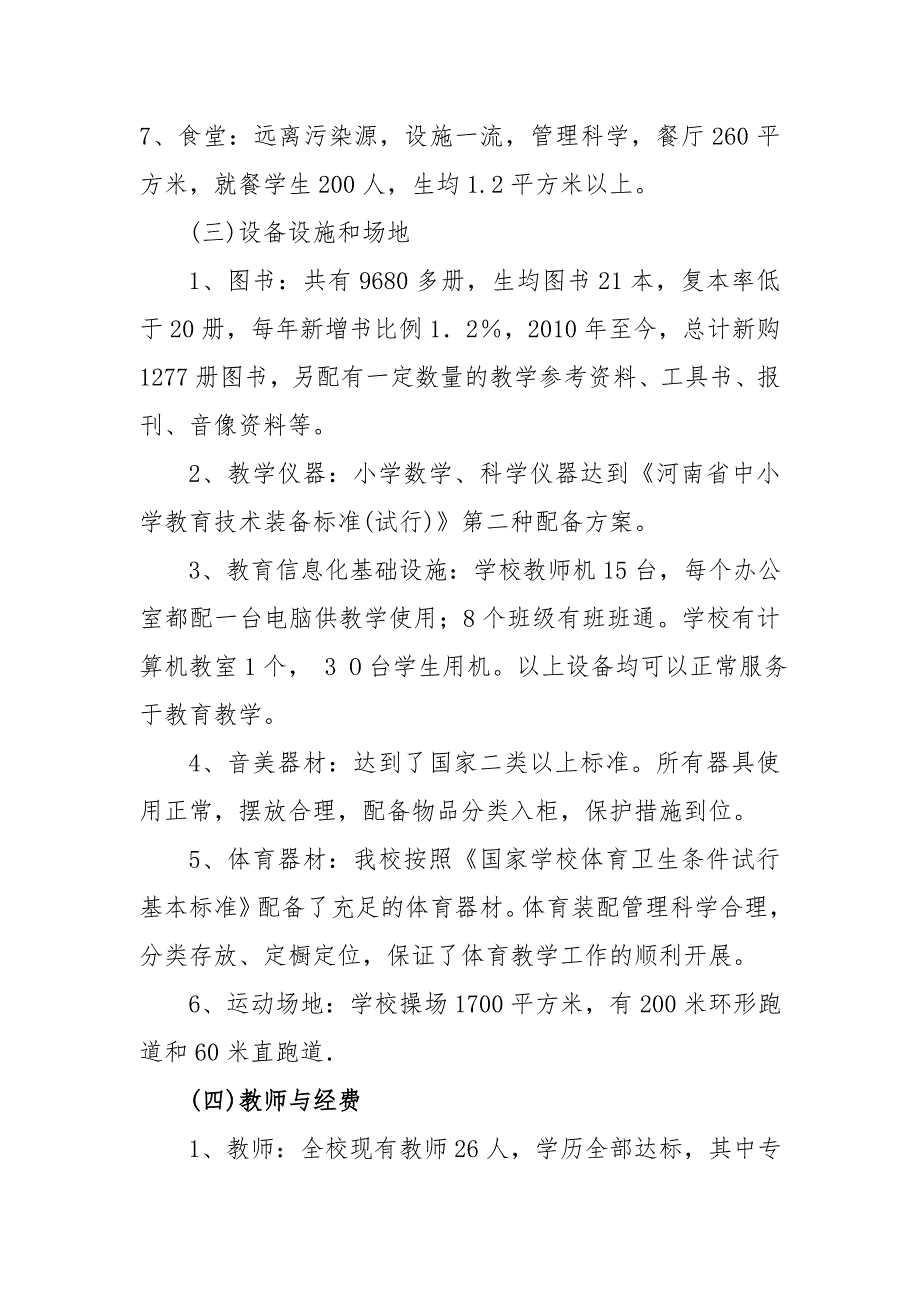 7、食堂：远离污染源，设施一流，管理科学，餐厅260平
方米，就餐学生200人，生均1.2平方米以上。
(三)设备设施和场地
1、图书：共有9680多册，生均图书21本，复本率低
于20册，每年新增书比例1．2％，2010年至今，总计新购
1277册图书，另配有一定数量的教学参考资料、工具书、报
刊、音像资料等。
2、教学仪器：小学数学、科学仪器达到《河南省中小
学教育技术装备标准(试行)》第二种配备方案。
3、教育信息化基础设施：学校教师机15台，每个办公
室都配一台电脑供教学使用；8个班级有班班通。学校有计
算机教室1个， ３０台学生用机。以上设备均可以正常服务
于教育教学。
4、音美器材：达到了国家二类以上标准。所有器具使
用正常，摆放合理，配备物品分类入柜，保护措施到位。
5、体育器材：我校按照《国家学校体育卫生条件试行
基本标准》配备了充足的体育器材。体育装配管理科学合理，
分类存放、定橱定位，保证了体育教学工作的顺利开展。
6、运动场地：学校操场1700平方米，有200米环形跑
道和60米直跑道．
(四)教师与经费
1、教师：全校现有教师26人，学历全部达标，其中专